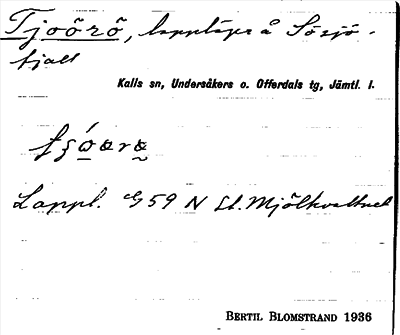 Tjoõrõ, lappläger å Sösjö-
fjäll
Kalls sn, Undersåkers o. Offerdals tg, Jämtl. l.
Lappl. G 59 N St. Mjölkvattnet
BERTIL BLOMSTRAND 1936